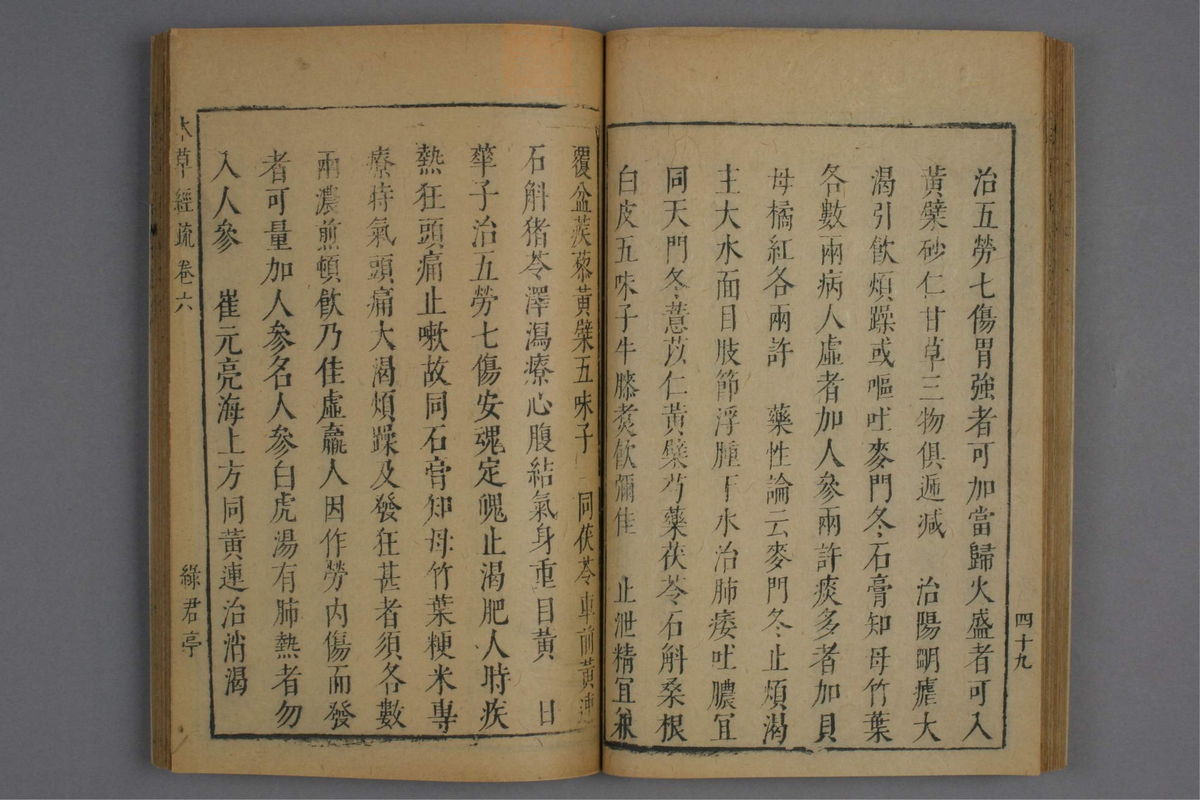 治五勞七傷胃強者可加當歸火盛者可入
黃檗砂仁甘草三物俱遞减　治陽明瘧大
渴引飲煩躁或嘔吐麥門冬石膏知母竹葉
各數兩病人虛者加人參兩許痰多者加貝
母橘紅各兩許　藥性論云麥門冬止煩渴
主大水面目肢節浮腫下水治肺痿吐膿宜
同天門冬薏苡仁黃檗芍藥茯苓石斛桑根
白皮五味子牛膝煑飲彌佳　止泄精宜兼
四十九
覆盆蒺藜黃檗五味子　同茯苓車前黃連
石斛猪苓澤瀉療心腹結氣身重目黃　日
華子治五勞七傷安魂定魄止渴肥人時疾
熱狂頭痛止嗽故同石膏知母竹葉粳米專
療時氣頭痛大渴煩躁及發狂甚者須各數
兩濃煎頓飲乃佳虛羸人因作勞內傷而發
者可量加人參名人參白虎湯有肺熱者勿
入人參　崔元亮海上方同黃連治消渴
本草經疏　卷六　綠君亭